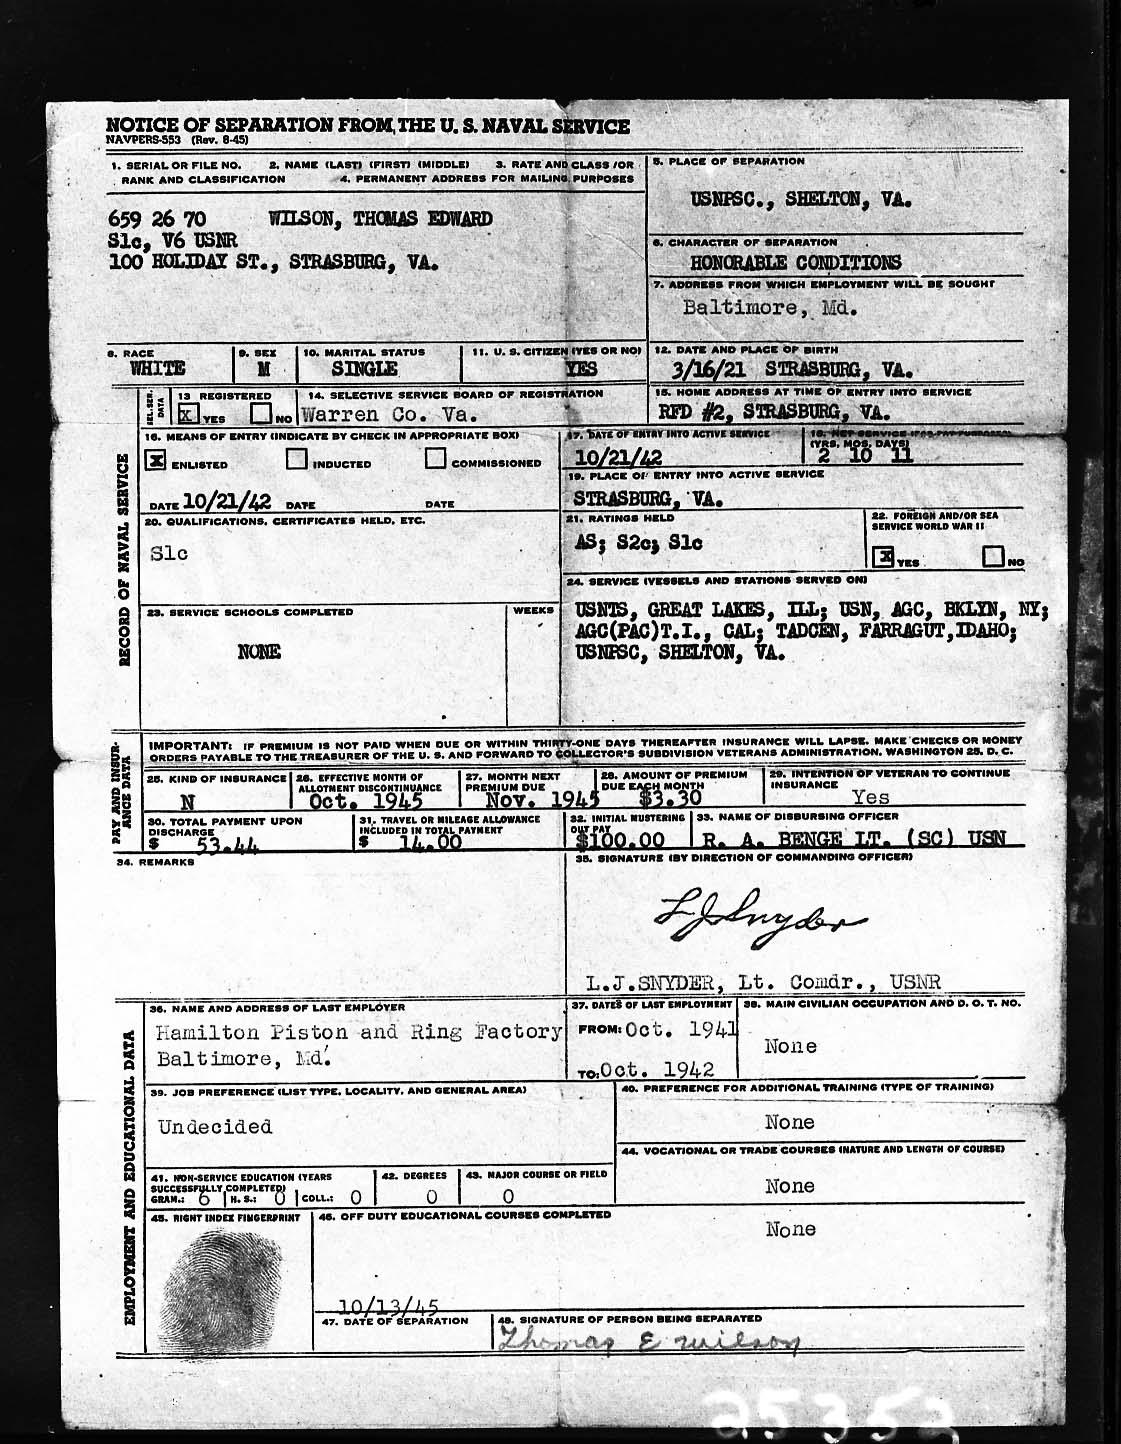 NOTICE OF SEPARATION FROM THE U. S. NAVAL SERVICE
NAVPERS-553 (Rev. 8-45)
1. SERIAL OR FILE NO. 2. NAME (LAST) (FIRST) (MIDDLE) 3. RATE AND CLASS /OR
RANK AND CLASSIFICATION 4. PERMANENT ADDRESS FOR MAILING PURPOSES
659 26 70 WILSON, THOMAS EDWARD
S1c, V6 USNR
100 HOLIDAY ST., STRASBURG, VA.
5. PLACE OF SEPARATION
USNPSC., SHELTON, VA.
6. CHARACTER OF SEPARATION
HONORABLE CONDITIONS
7. ADDRESS FROM WHICH EMPLOYMENT WILL BE SOUGHT
Baltimore, Md.
8. RACE
WHITE
9. SEX
M
10. MARITAL STATUS
SINGLE
11. U. S. CITIZEN (YES OR NO)
YES
12. DATE AND PLACE OF BIRTH
3/16/21 STRASBURG, VA.
SEL. SER. DATA
13 REGISTERED
X YES NO
14. SELECTIVE SERVICE BOARD OF REGISTRATION
Warren Co. Va.
15. HOME ADDRESS AT TIME OF ENTRY INTO SERVICE
RFD #2, STRASBURG, VA.
RECORD OF NAVAL SERVICE
16. MEANS OF ENTRY (INDICATE BY CHECK IN APPROPRIATE BOX)
X ENLISTED INDUCTED COMMISSIONED
DATE 10/21/42 DATE DATE
17. DATE OF ENTRY INTO ACTIVE SERVICE
10/21/42
18. NET SERVICE (FOR PAY PURPOSES)
(YRS. MOS. DAYS)
2 10 11
19. PLACE OF ENTRY INTO ACTIVE SERVICE
STRASBURG, VA.
20. QUALIFICATIONS, CERTIFICATES HELD, ETC.
S1c
21. RATINGS HELD
AS; S2c; S1c
22. FOREIGN AND/OR SEA
SERVICE WORLD WAR II
X YES NO
23. SERVICE SCHOOLS COMPLETED WEEKS
NONE
24. SERVICE (VESSELS AND STATIONS SERVED ON)
USNTS, GREAT LAKES, ILL; USN, AGC, BKLYN, NY;
AGC(PAC)T.I., CAL; TADCEN, FARRAGUT,IDAHO;
USNPSC, SHELTON, VA.
PAY AND INSUR-
ANCE DATA
IMPORTANT: IF PREMIUM IS NOT PAID WHEN DUE OR WITHIN THIRTY-ONE DAYS THEREAFTER INSURANCE WILL LAPSE. MAKE CHECKS OR MONEY
ORDERS PAYABLE TO THE TREASURER OF THE U. S. AND FORWARD TO COLLECTOR'S SUBDIVISION VETERANS ADMINISTRATION. WASHINGTON 25. D. C.
25. KIND OF INSURANCE
N
26. EFFECTIVE MONTH OF
ALLOTMENT DISCONTINUANCE
Oct. 1945
27. MONTH NEXT
PREMIUM DUE
Nov. 1945
28. AMOUNT OF PREMIUM
DUE EACH MONTH
$3.30
29. INTENTION OF VETERAN TO CONTINUE
INSURANCE
Yes
30. TOTAL PAYMENT UPON
DISCHARGE
$ 53.44
31. TRAVEL OR MILEAGE ALLOWANCE
INCLUDED IN TOTAL PAYMENT
$ 14.00
32. INITIAL MUSTERING
OUT PAY
$100.00
33. NAME OF DISBURSING OFFICER
R. A. BENGE LT. (SC) USN
34. REMARKS
35. SIGNATURE (BY DIRECTION OF COMMANDING OFFICER)
L J Snyder
L.J.SNYDER, Lt. Comdr., USNR
EMPLOYMENT AND EDUCATIONAL DATA
36. NAME AND ADDRESS OF LAST EMPLOYER
Hamilton Piston and Ring Factory
Baltimore, Md.
37. DATES OF LAST EMPLOYMENT
FROM: Oct. 1941
TO: Oct. 1942
38. MAIN CIVILIAN OCCUPATION AND D. O. T. NO.
None
39. JOB PREFERENCE (LIST TYPE, LOCALITY, AND GENERAL AREA)
Undecided
40. PREFERENCE FOR ADDITIONAL TRAINING (TYPE OF TRAINING)
None
41. NON-SERVICE EDUCATION (YEARS
SUCCESSFULLY COMPLETED)
GRAM.: 6 H. S.: 0 COLL.: 0
42. DEGREES
0
43. MAJOR COURSE OR FIELD
0
44. VOCATIONAL OR TRADE COURSES (NATURE AND LENGTH OF COURSE)
None
45. RIGHT INDEX FINGERPRINT
46. OFF DUTY EDUCATIONAL COURSES COMPLETED
None
10/13/45
47. DATE OF SEPARATION
48. SIGNATURE OF PERSON BEING SEPARATED
Thomas E Wilson
25353